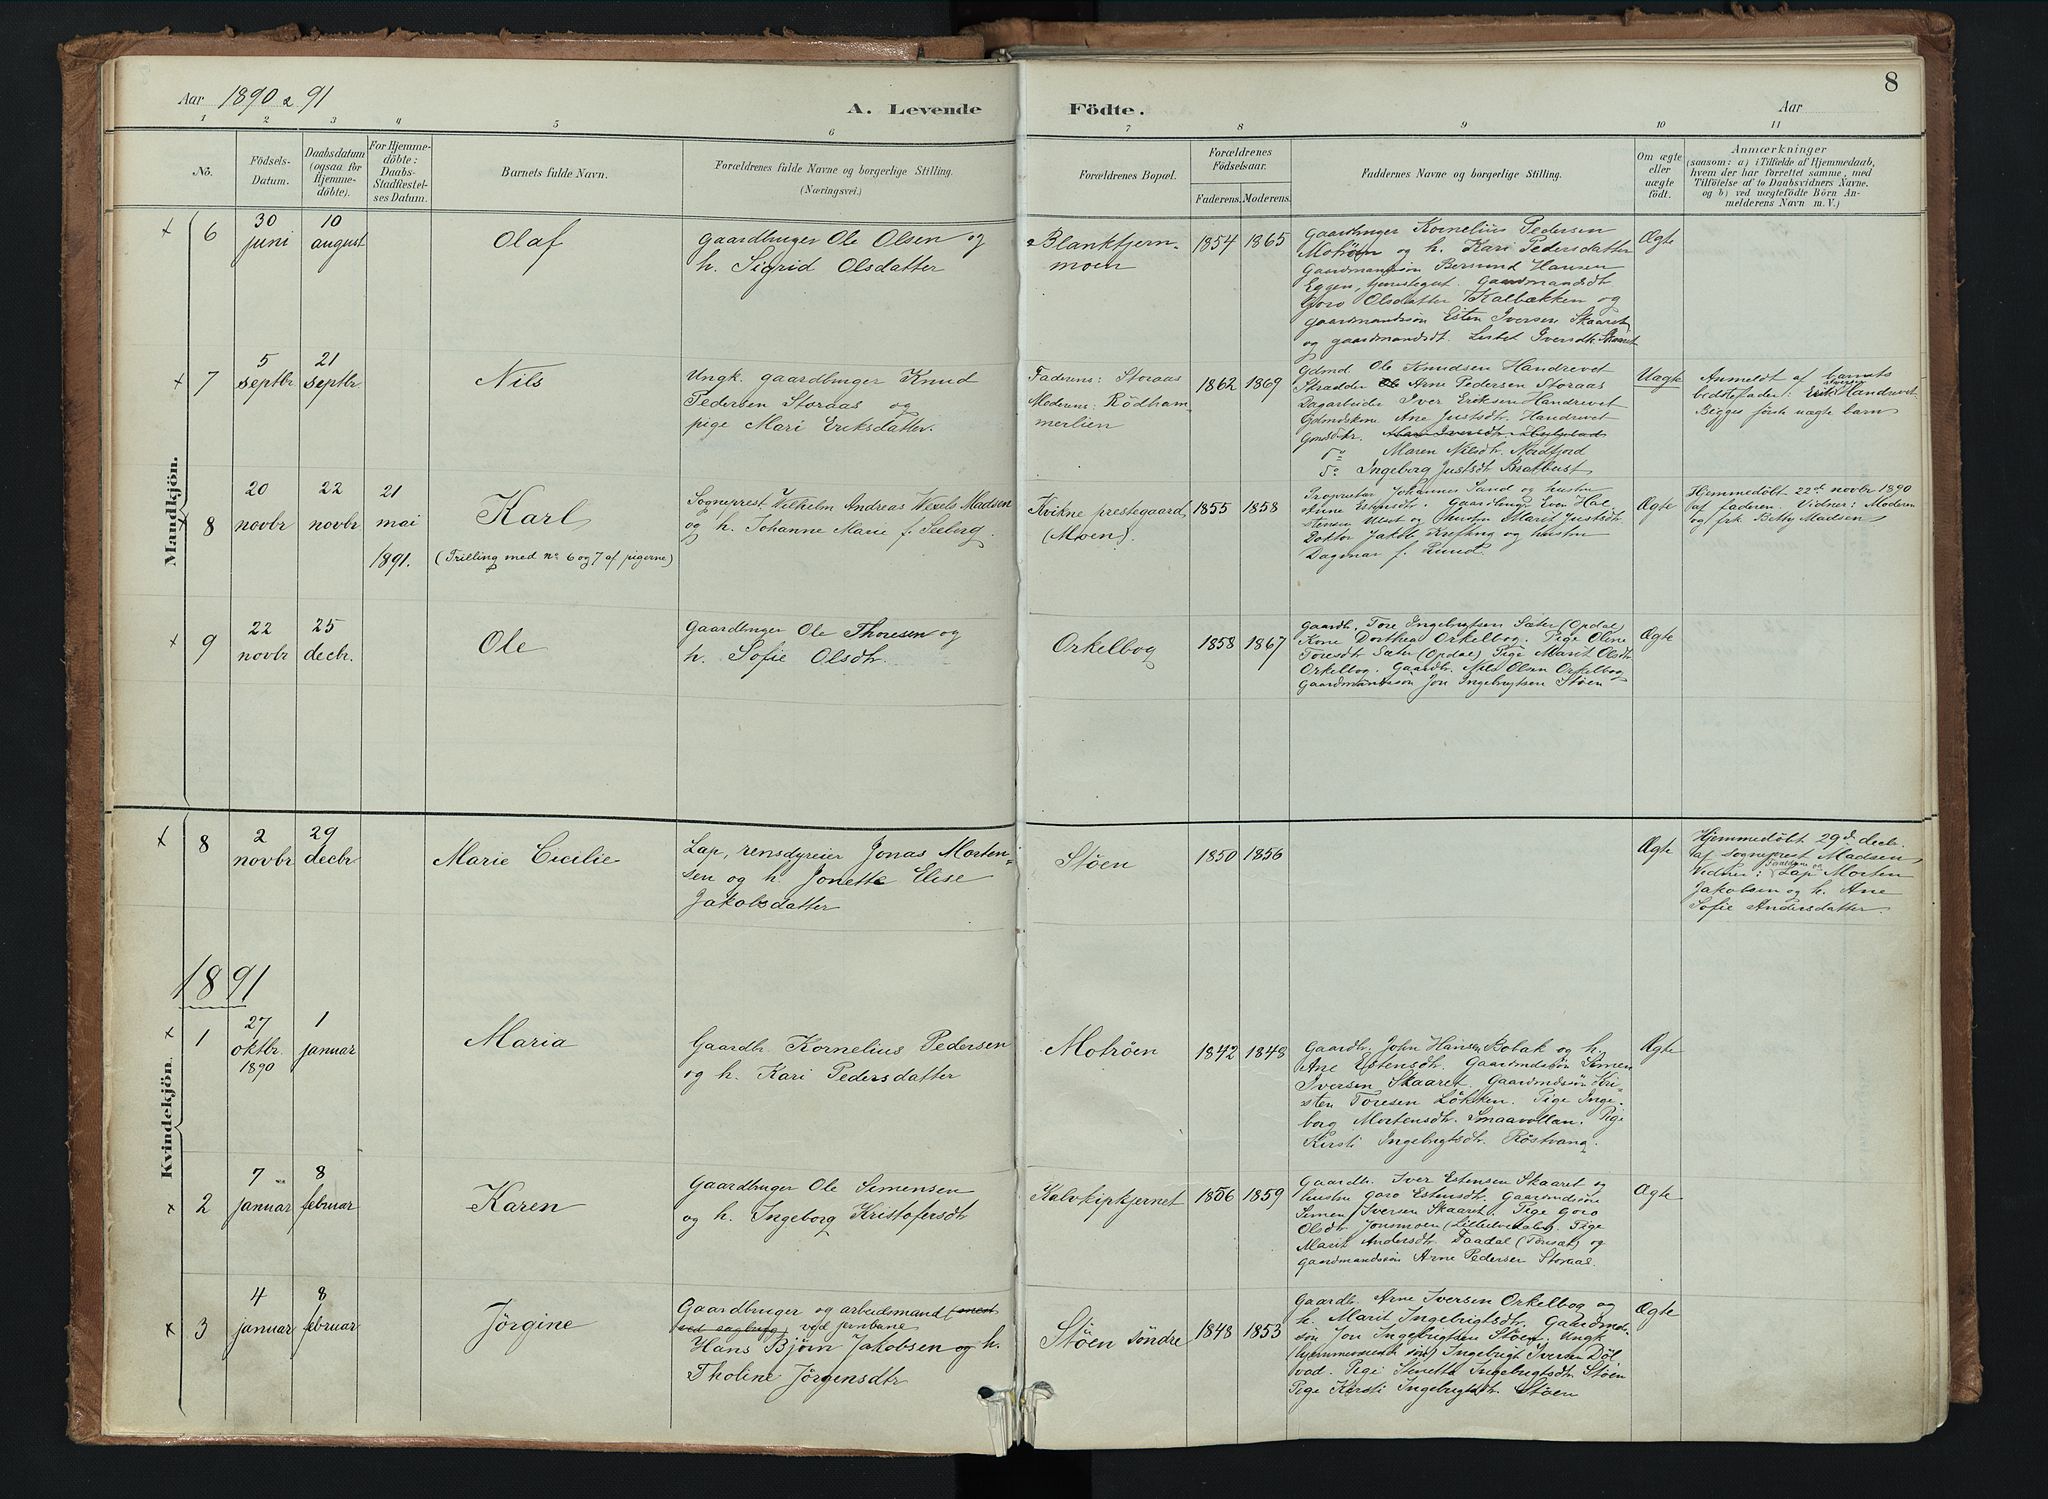 Aar 1890 & 91
A. Levende Födte.
Aar
8
1 2 3 4 5 6 7 8 9 10 11
No.
Födsels-
Datum.
Daabsdatum
(ogsaa for
Hjemme-
döbte).
For Hjemme-
döbte:
Daabs-
Stadfæstel-
ses Datum.
Barnets fulde Navn.
Forældrenes fulde Navne og borgerlige Stilling.
(Næringsvei.)
Forældrenes Bopæl.
Forældrenes
Födselsaar.
Faderens. Moderens.
Faddernes Navne og borgerlige Stilling.
Om ægte
eller
uægte
födt.
Anmærkninger
(saasom: a) i Tilfælde af Hjemmedaab,
hvem der har forrettet samme, med
Tilföielse af to Daabsvidners Navne.
og b) ved uægtefödte Börn An-
melderens Navn m. V.)
Mandkjön.
6
30
juni
10
august
Olaf
Gaardbruger Ole Olsen og
h. Sigrid Olsdatter
Blanktjern-
moen
1854 1865
Gaardbruger Kornelius Pedersen
Motrøen og h. Kari Pedersdatter
Gaardmandssøn Bersund Hansen
Eggen, Gaardmandsdt.
Goro Olsdatter Kalbækken og
gaardmandssøn Esten Iversen Skaaret
og gaardmandsdt. Lisbet Iversdtr. Skaaret
Ægte
7
5
septbr
21
septbr
Nils
Ungk. gaardbruger Knud
Pedersen Storaas og
pige Mari Eriksdatter.
Faderens: Storaas
Moderens: Rödham-
merlien
1862 1869
Gdmd Ole Knudsen Handrevet
Skrædder Arne Pedersen Storaas
Dagarbeider Iver Eriksen Handrevet
Gdmdskone Ane Justsdtr. Handrevet
Gmdsdtr. Mari Iversdtr.
do Maren Nilsdtr. Nordfjord
do Ingeborg Justsdtr Bratbust
Uægte
Anmeldt af barnets
bedstefader: Erik Iversen Handrevet
Begges første uægte barn
8
20
novbr
22
novbr
21
mai
1891.
Karl
(Trilling med no 6 og 7 af pigerne)
Sogneprest Wilhelm Andreas Wexels Madsen
og h. Johanne Marie f. Seeberg.
Kvikne prestegaard
(Moen).
1855 1858
Proprietær Johannes Sand og hustru
Anne Estensdt. Gaardbruger Even Hal-
stensen Ulset og hustru Marit Justsdtr
Doktor Jakob Krefting og hustru
Dagmar f. Lund.
Ægte
Hjemmedøbt 22de novbr 1890
af faderen. Vidner: Moderen
og frk. Betty Madsen
9
22
novbr
25
decbr.
Ole
Gaardbruger Ole Thoresen og
h. Sofie Olsdtr.
Orkelbog
1858 1867
Gaardb. Tore Ingebrigtsen Sæter (Opdal)
Kone Dorthea Orkelbog. Pige Oline
Toresdtr Sæter (Opdal) Pige Marit Olsdtr
Orkelbog. Gaardbr. Nils Olsen Orkelbog
Gaardmandssøn Jon Ingebrigtsen Støen
Ægte
8
2
novbr
29
decbr
Marie Cecilie
Lap, rensdyreier Jonas Morten-
sen og h. Jonette Elise
Jakobsdatter
Støen
1850 1856
Ægte
Hjemmedøbt 29de decbr.
af sogneprest Madsen
Vidner: Forældrene og Lap Morten
Jakobsen og h. Ane
Sofie Andersdatter.
1891
Kvindekjön.
1
27
oktbr.
1890
1
januar
Maria
Gaardbr. Kornelius Pedersen
og h. Kari Pedersdatter
Motrøen
1842 1848
Gaardbr. John Hansen Bobak og h.
Ane Estensdtr. Gaardmdssøn Simen
Iversen Skaaret. Gaardmdsøn Kri-
sten Toresen Løkken. Pige Inge-
borg Mortensdtr. Smaavollan. Pige
Kirsti Ingebrigtsdtr. Röstvang.
Ægte
2
7
januar
8
februar
Karen
Gaardbruger Ole Simensen
og h. Ingeborg Kristofersdtr
Kalvkipkjernet
1856 1859
Gaardbr. Iver Estensen Skaaret og
hustru Goro Estensdtr. Gaardmdssøn
Simen Iversen Skaaret. Pige Goro
Olsdtr. Jonsmoen (Lilleelvedalen). Pige
Marit Andersdtr. Taadal (Tonset) og
gaardmandssøn Arne Pedersen Storaas.
Ægte
3
4
januar
8
februar
Jørgine
Gaardbruger og arbeidsmand
ved sagbrug, ved jernbane
Hans Bjørn Jakobsen og h.
Tholine Jörgensdtr
Støen søndre
1848 1853
Gaardbr. Arne Iversen Orkelbog og
h. Marit Ingebrigtsdtr. Gaardmd-
søn Jon Ingebrigtsen Støen. Ungk.
(hjemmeværende søn) Ingebrigt Iversen Döl-
vad. Pige Sinette Ingebrigtsdtr Støen
Pige Kirsti Ingebrigtsdtr. Støen
Ægte